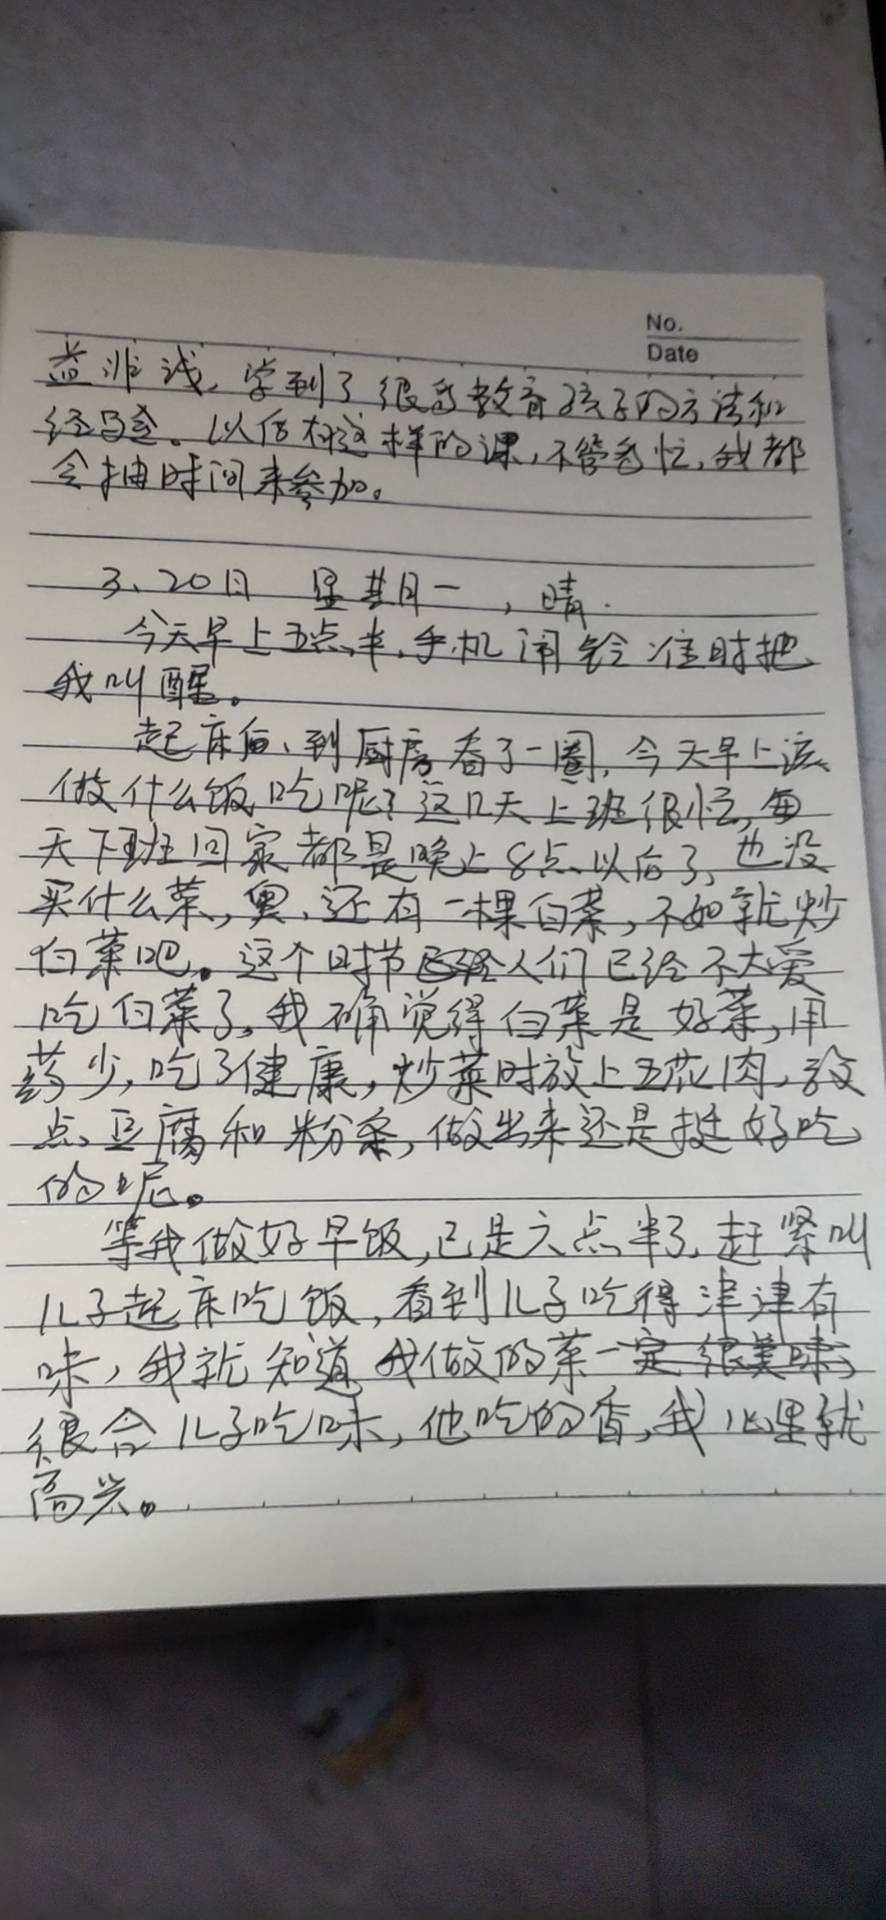 No.
Date
益非浅,学到了很多教育孩子的方法和
经验。以后有这样的课,不管多忙,我都
会抽时间来参加。
3、20日 星期一,晴.
今天早上五点半,手机闹铃准时把
我叫醒。
起床后、到厨房看了一圈,今天早上该
做什么饭吃呢?这几天上班很忙,每
天下班回家都是晚上8点以后了,也没
买什么菜,奥,还有一棵白菜,不如就炒
白菜吧。这个时节人们已经不大爱
吃白菜了,我确觉得白菜是好菜,用
药少,吃了健康,炒菜时放上五花肉,放
点豆腐和粉条,做出来还是挺好吃
的呢。
等我做好早饭,已是六点半了,赶紧叫
儿子起床吃饭,看到儿子吃得津津有
味,我就知道我做的菜一定很美味,
很合儿子吃味,他吃的香,我心里就
高兴。